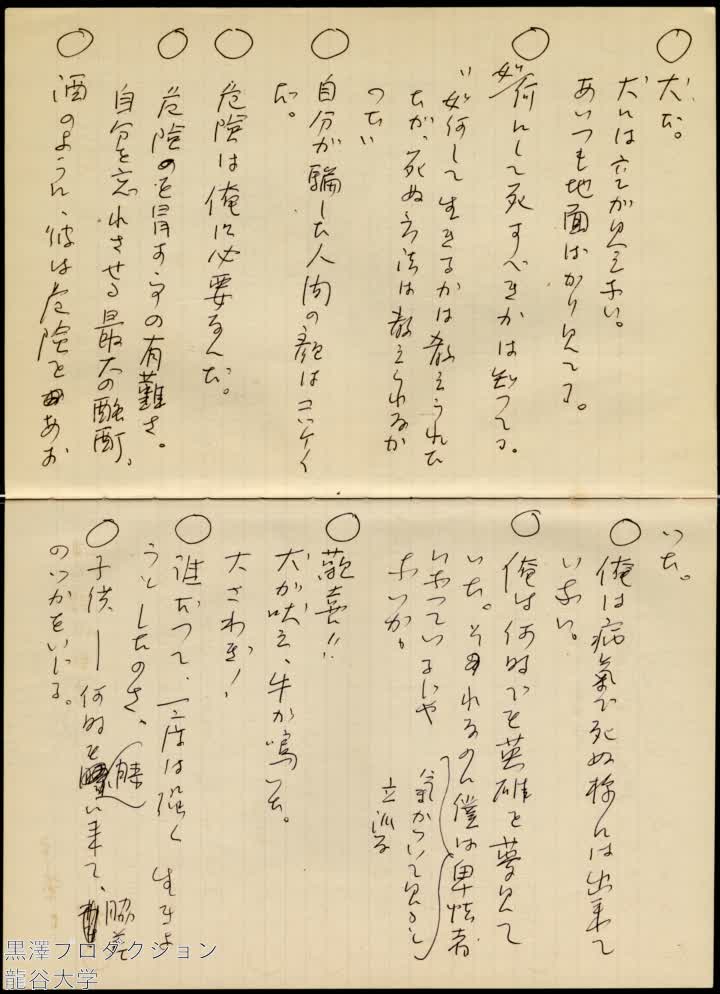 ○犬だ。
犬には空が見えない。
あいつも地面ばかり見てる。
○如何にして死すべきかは知つてる。
"如何して生きるかは教えられた
だが、死ぬ方法は教えられなか
つた"
○自分が騙した人間の顔はコッケイ
だ。
○危険は俺に必要なんだ。
○危険を冒すの有難さ。
自分を忘れさせる最大の酩酊。
○酒のように、彼は危険をあお
つた。
○俺は病氣で死ぬ様には出来て
いない。
○俺は何時でも英雄を夢見て
いた。それなのに僕は卑怯者
になつているじや
ないか。
(氣がついて見ると)
立派な
○歓喜!!
犬が吠え、牛が鳴いた。
大さわぎ!
○誰だつて、一度は強く生きよ
うとしたのさ、
○子供―何時も膝に来て、脇差
のつかをいじる。
黒澤プロダクション
龍谷大学